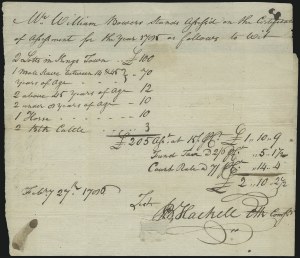 Mr William Bowers Stands Assess'd in the
of Assessment for the Year 1786 as follows to Wit
2 Lotts in Kings Town £ 100
1 Male Slave between 14 & 45
Years of Age 70
2 above 45 Years of Age 12
2 under 8 Years of Age 10
1 Horse 10
2 Neat Cattle 3
£ 205 £ 1 ,, 10 ,, 9
Fund Tax 5 ,, 1½
Court Rate 14 ,, 4
£ 2 ,, 10 ,, 2½
Feb.y 27th 1786
Test
Hackett